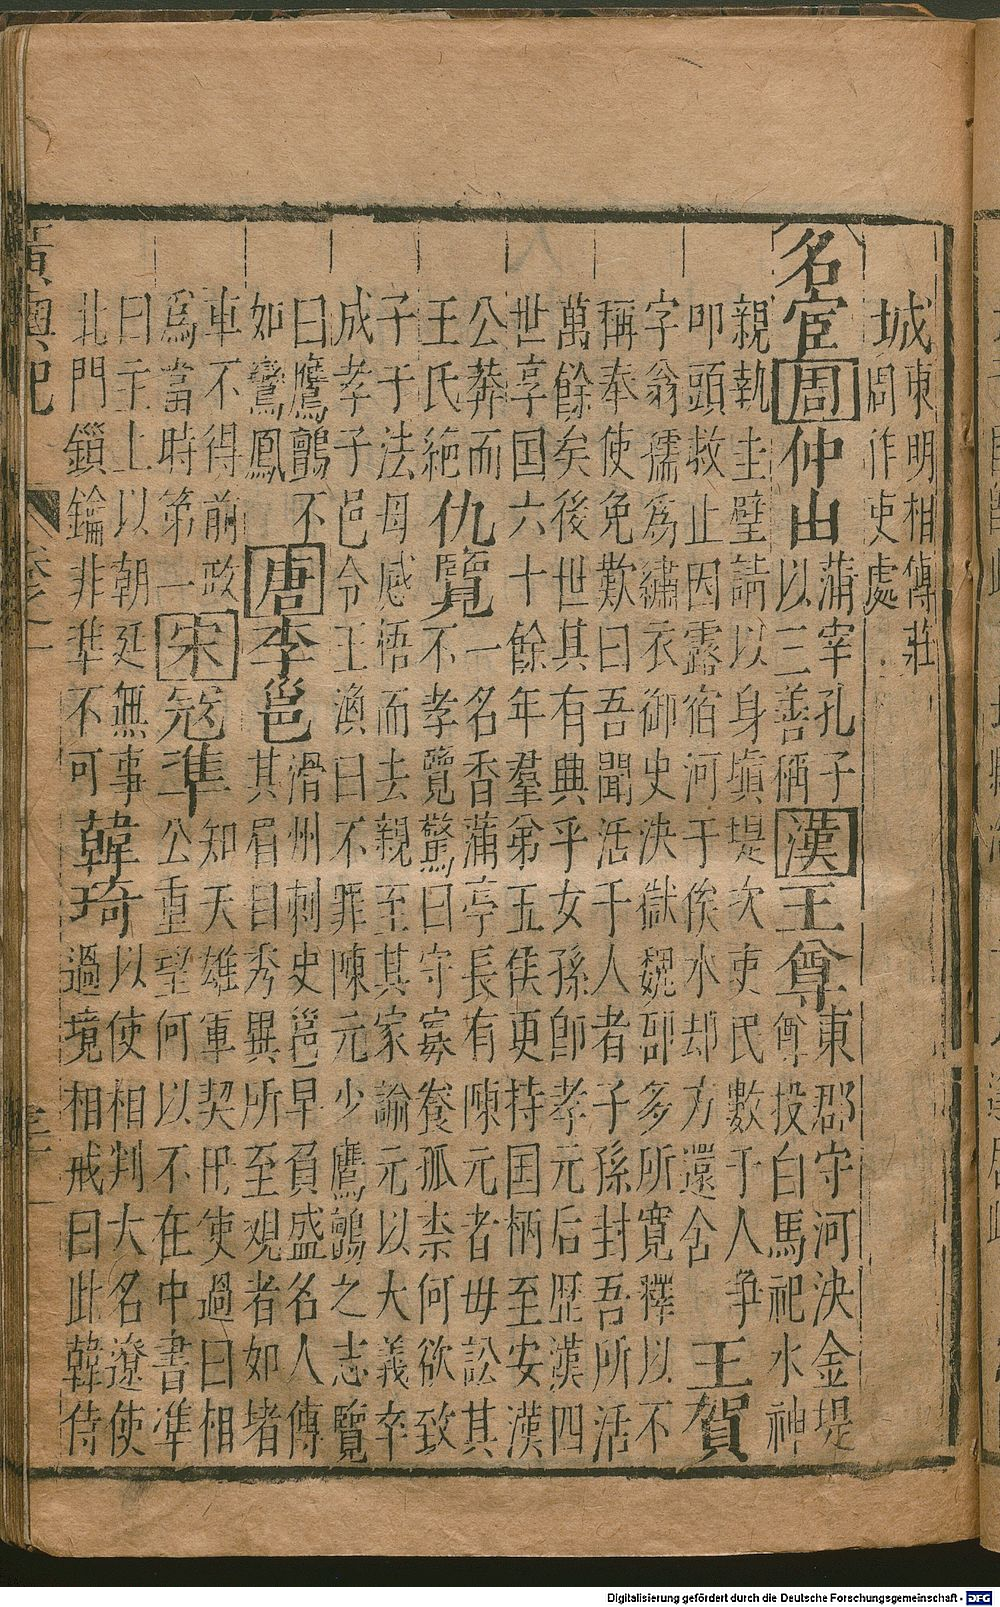 城東明相傳莊
周作吏處
名宦 周 仲由 蒲宰孔子
以三善稱 漢 王尊 東郡守河決金堤
尊投白馬祀水神
親執圭璧請以身塡堤次吏民數千人爭
叩頭救止因露宿河于俟水却方還舍 王賀
字翁孺爲繡衣御史決獄魏郡多所寬釋以不
稱奉使免歎曰吾聞活千人者子孫封吾所活
萬餘矣後世其有興乎女孫卽孝元后歷漢四
世享囯六十餘年羣弟五侯更持囯柄至安漢
公莽而
王氏絕 仇覽 一名香蒲亭長有陳元者毋訟其
不孝覽驚曰守寡養孤柰何欲致
子于法母感悟而去親至其家諭元以大義卒
成孝子邑令王渙曰不罪陳元少鷹鸇之志覽
曰鷹鸇不
如鸞鳳 唐 李邕 滑州刺史邕早負盛名人傳
其眉目秀異所至观者如堵
車不得前政
爲當時第一 宋 冦準 知天雄軍契丹使過曰相
公重望何以不在中書準
曰主上以朝延無事
北門鎖鑰非準不可 韓琦 以使相判大名遼使
過境相戒曰此韓侍
廣輿記
卷之一
Digitalisierung gefördert durch die Deutsche Forschungsgemeinschaft - DFG